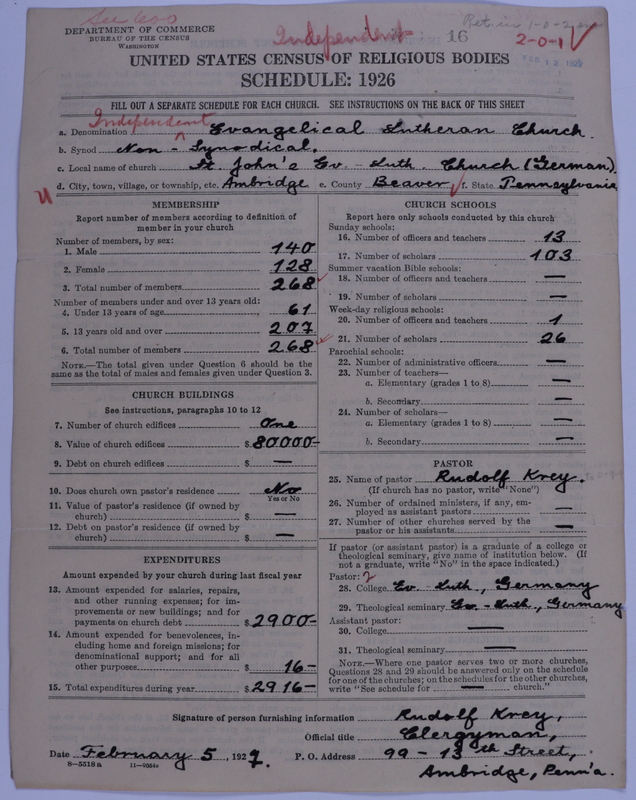 See 600
DEPARTMENT OF COMMERCE
BUREAU OF THE CENSUS
WASHINGTON
Independent 16
2-0-1
UNITED STATES CENSUS OF RELIGIOUS BODIES
SCHEDULE: 1926
FILL OUT A SEPARATE SCHEDULE FOR EACH CHURCH. SEE INSTRUCTIONS ON THE BACK OF THIS SHEET
Independent
a. Denomination Evangelical Lutheran Church.
b. Synod Non-Synodical.
c. Local name of church St. John's Ev-Luth. Church (German)
d. City, town, village, or township, etc. Ambridge e. County Beaver f. State Pennsylvania
MEMBERSHIP
Report number of members according to definition of member in your church
Number of members, by sex:
1. Male 140
2. Female 128
3. Total number of members 268
Number of members under and over 13 years old:
4. Under 13 years of age 61
5. 13 years old and over 207
6. Total number of members 268
NOTE.—The total given under Question 6 should be the same as the total of males and females given under Question 3.
CHURCH BUILDINGS
See instructions, paragraphs 10 to 12
7. Number of church edifices One
8. Value of church edifices $80000-
9. Debt on church edifices $ —
10. Does church own pastor's residence No
Yes or No
11. Value of pastor's residence (if owned by church) $ —
12. Debt on pastor's residence (if owned by church) $ —
EXPENDITURES
Amount expended by your church during last fiscal year
13. Amount expended for salaries, repairs, and other running expenses; for improvements or new buildings; and for payments on church debt $2900-
14. Amount expended for benevolences, including home and foreign missions; for denominational support; and for all other purposes $ 16-
15. Total expenditures during year $2916-
CHURCH SCHOOLS
Report here only schools conducted by this church
Sunday schools:
16. Number of officers and teachers 13
17. Number of scholars 103
Summer vacation Bible schools:
18. Number of officers and teachers —
19. Number of scholars —
Week-day religious schools:
20. Number of officers and teachers 1
21. Number of scholars 26
Parochial schools:
22. Number of administrative officers —
23. Number of teachers—
a. Elementary (grades 1 to 8) —
b. Secondary —
24. Number of scholars—
a. Elementary (grades 1 to 8) —
b. Secondary —
PASTOR
25. Name of pastor Rudolf Krey.
(If church has no pastor, write "None")
26. Number of ordained ministers, if any, employed as assistant pastors —
27. Number of other churches served by the pastor or his assistants —
If pastor (or assistant pastor) is a graduate of a college or theological seminary, give name of institution below. (If not a graduate, write "No" in the space indicated.)
Pastor:
28. College Ev. Luth., Germany
29. Theological seminary Ev-Luth., Germany
Assistant pastor:
30. College —
31. Theological seminary —
NOTE.—Where one pastor serves two or more churches, Questions 28 and 29 should be answered only on the schedule for one of the churches; on the schedules for the other churches, write "See schedule for — church."
Signature of person furnishing information Rudolf Krey,
Official title Clergyman,
Date February 5, 1927. P. O. Address 99-13th Street,
8-5518a
Ambridge, Penn'a.